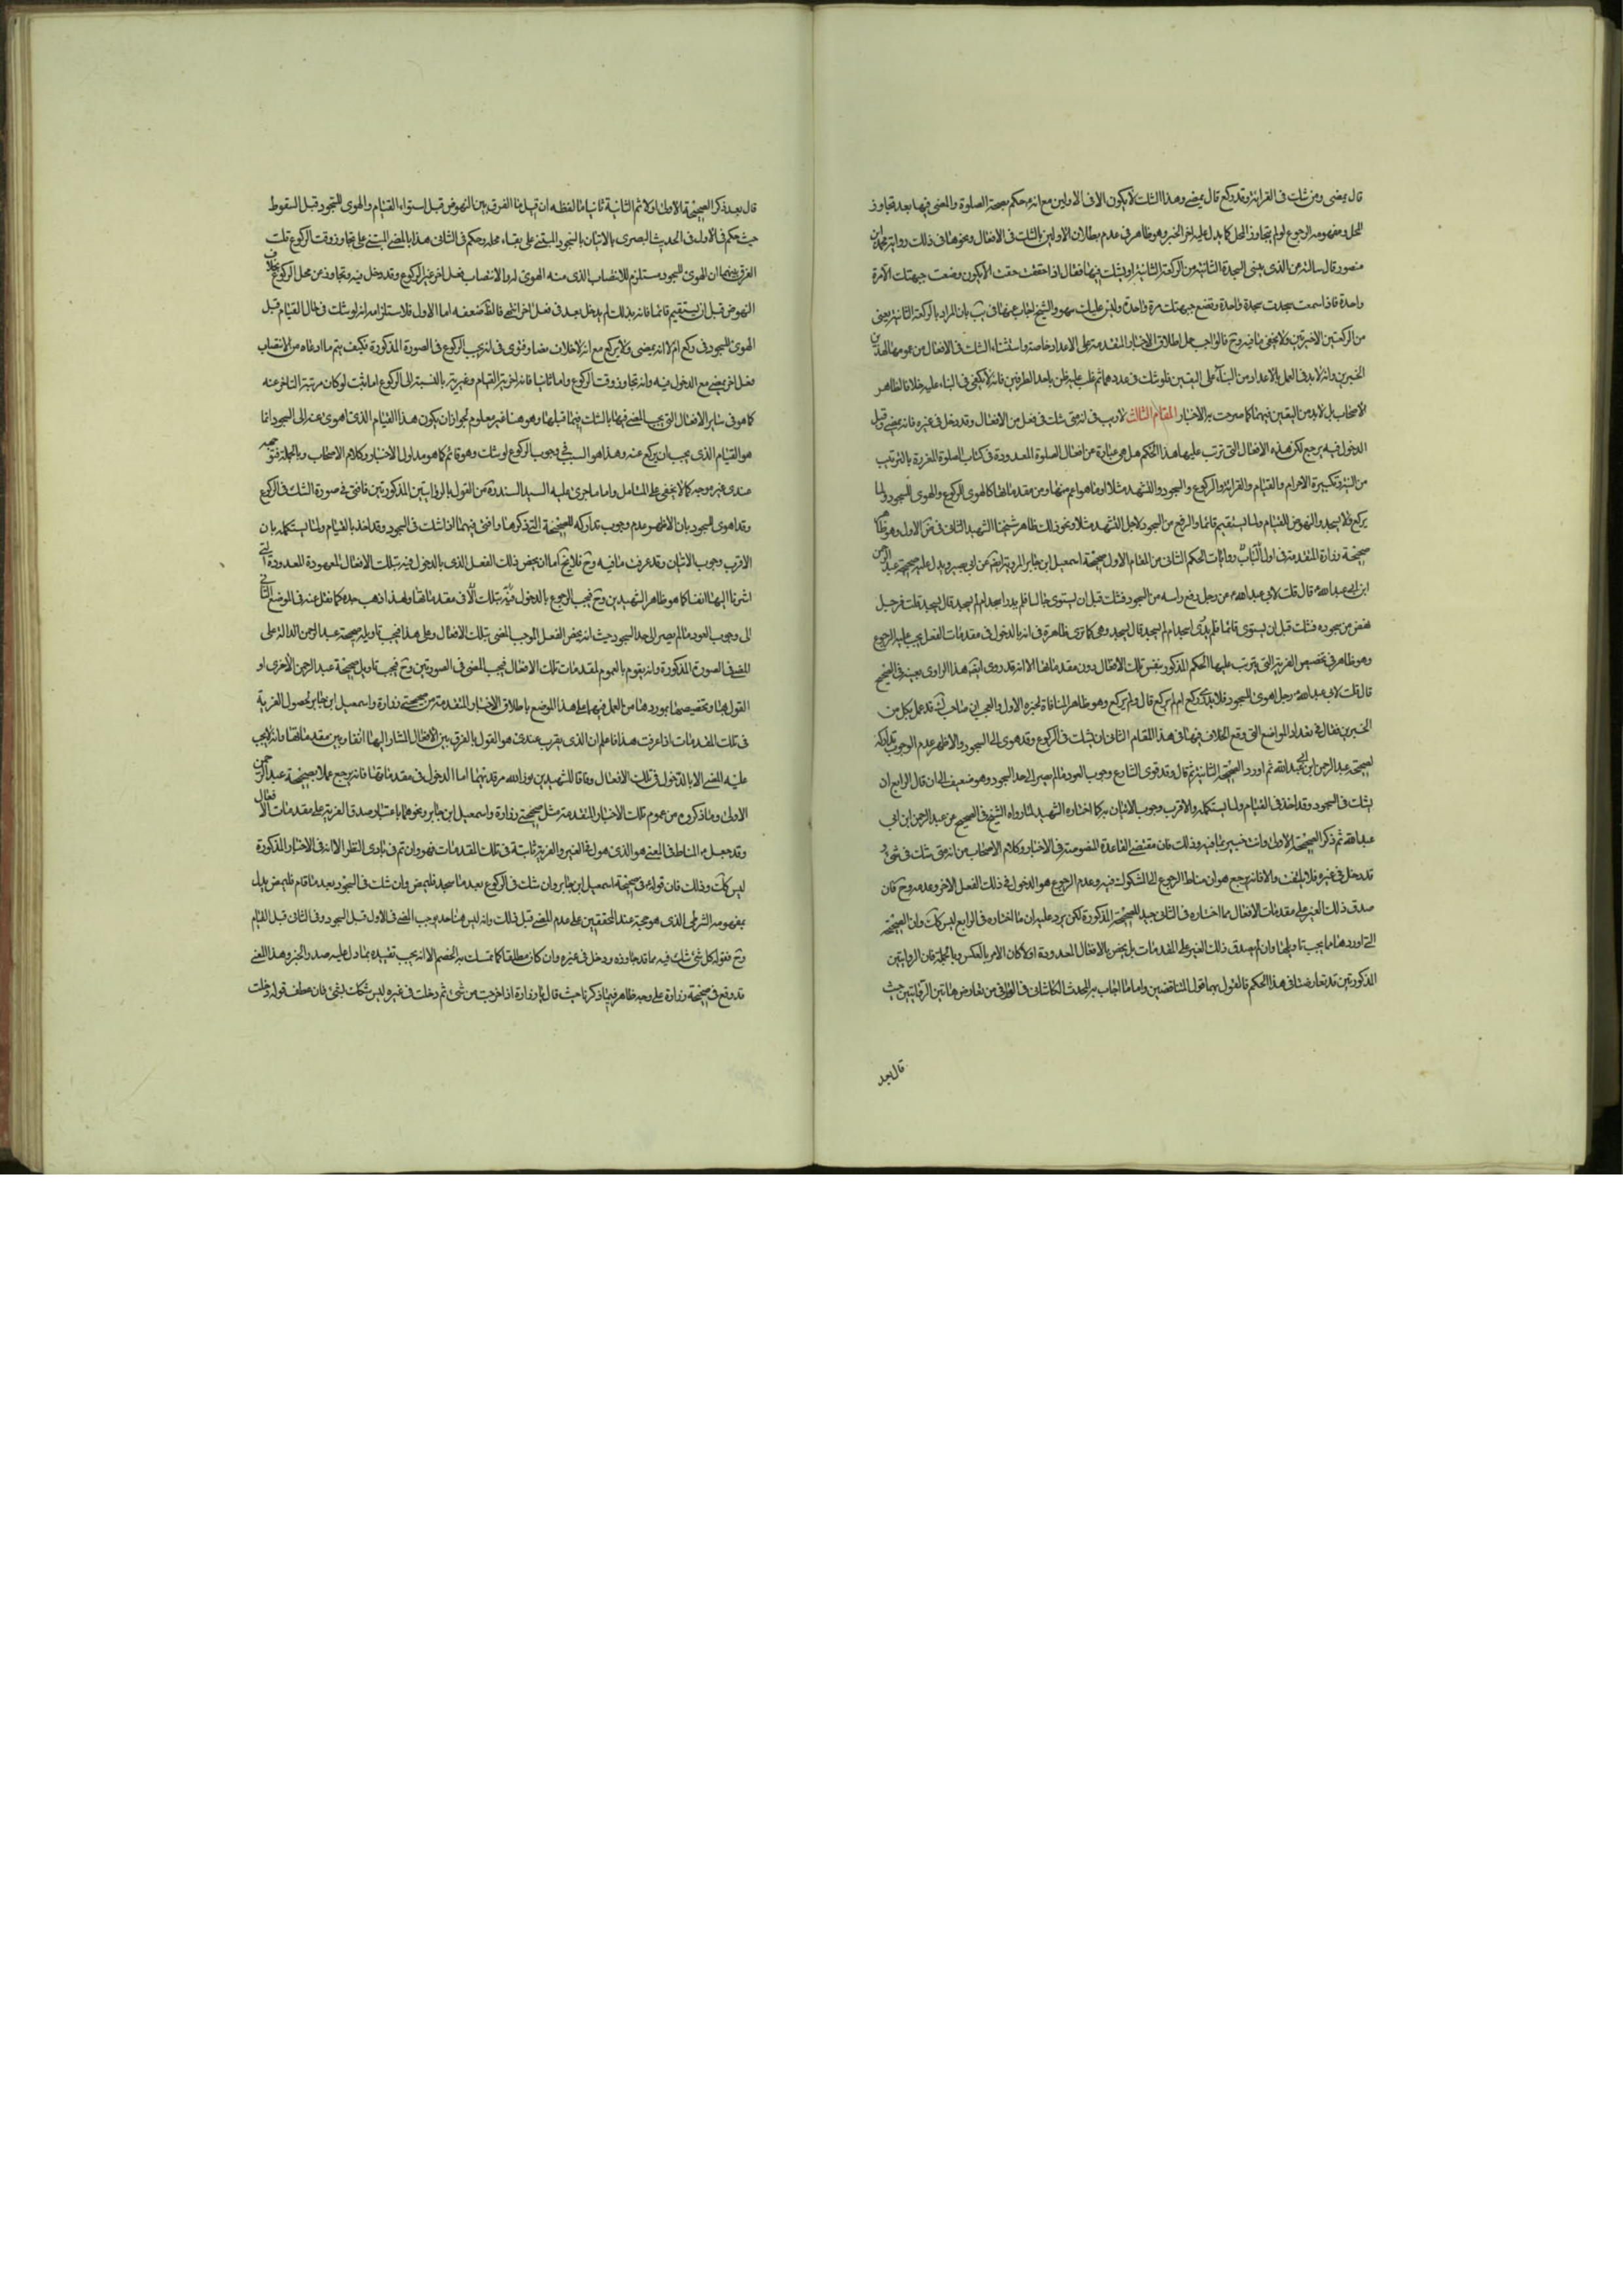 قال يمضى ومن شك فى القرائة وقد ركع قال يمضى وهذا الشك لا يكون الا فى الاولين مع انه ع حكم بصحة الصلوة والمضى فيها بعد تجاوز
المحل ومفهومه الرجوع لو لم يتجاوز المحل كما يدل عليه اخر الخبر وهو ظاهر فى عدم بطلان الاولين بالشك فى الافعال ونحوها فى ذلك رواية محمد بن
منصور قال سالته عن الذى ينسى السجدة الثانية من الركعة الثانية او يشك فيها فقال اذا خفت ان لا يكون وضعت جبهتك الا مرة
واحدة فاذا سلمت سجدت سجدة واحدة وتضع جبهتك مرة واحدة وليس عليك سهو والشيخ اجاب عنها فى يب بان المراد بالركعة الثانية يعنى
من الركعتين الاخيرتين ولا يخفى ما فيه وح فالواجب حمل اطلاق الاخبار المتقدمة على الاعداد خاصة واستثناء الشك فى الافعال من عمومها لهذين
الخبرين وانه لا بد فى العمل بالاعداد من البناء على اليقين فلو شك فى عددهما ثم غلب عليه ظن باحد الطرفين فانه لا يكفى فى البناء عليه خلافا لظاهر
الاصحاب بل لا بد من اليقين فيهما كما صرحت به الاخبار المقام الثالث لا ريب فى انه متى شك فى فعل من الافعال وقد دخل فى غيره فانه يمضى وقبل
الدخول فيه يرجع لكن هذه الافعال التى ترتب عليها هذا الحكم هل هى عبارة عن افعال الصلوة المعدودة فى كتاب الصلوة المفردة بالترتيب
من النية وتكبيرة الاحرام والقيام والقرائة والركوع والسجود والتشهد مثلا او ما هو اعم منها ومن مقدماتها كالهوى للركوع والهوى للسجود ولما
يركع ولا يسجد والنهوض للقيام ولما يستقيم قائما والرفع من السجود لاجل التشهد مثلا ونحو ذلك ظاهر شيخنا الشهيد الثانى فى الاول وهو ظاهر
صحيحة زرارة المتقدمة فى اول الباب وروايات الحكم الثانى من المقام الاول صحيحة اسمعيل ابن جابر المروية ايضا عن ابى بصير ويدل عليه صحيحة عبد الرحمن
ابن ابى عبد الله قال قلت لابى عبد الله ع رجل رفع راسه من السجود فشك قبل ان يستوى جالسا فلم يدر اسجد ام لم يسجد قال يسجد قلت فرجل
نهض من سجوده فشك قبل ان يستوى قائما فلم يدر اسجد ام لم يسجد قال يسجد وهى كما ترى ظاهرة فى انه بالدخول فى مقدمات الفعل يجب عليه الرجوع
وهو ظاهر فى تخصيص الغيرية التى يترتب عليها الحكم المذكور بنفس تلك الافعال دون مقدماتها الا انه قد روى ايضا هذا الراوى بعينه فى الصحيح
قال قلت لابى عبد الله ع رجل اهوى الى السجود فلا يدرى اركع ام لم يركع قال قد ركع وهو ظاهر المنافاة لخبره الاول والعجب ان صاحب قد عمل بكل من
الخبرين فقال فى تعداد المواضع التى وقع الخلاف فيها فى هذا المقام الثانى ان يشك فى الركوع وقد هوى الى السجود والاظهر عدم الوجوب تداركه
لصحيحة عبد الرحمن ابن ابى عبد الله ثم اورد الصحيحة الثانية ثم قال وقد قوى الشارع وجوب العود ما لم يصر الى حد السجود وهو ضعيف الى ان قال الرابع ان
يشك فى السجود وقد اخذ فى القيام ولما يستكمله والاقرب وجوب الاتيان به كما اختاره الشهيد لما رواه الشيخ فى الصحيح عن عبد الرحمن ابن ابى
عبد الله ثم ذكر الصحيحة الاولى وانت خبير بما فيه وذلك فان مقتضى القاعدة المفهومة من الاخبار وكلام الاصحاب من انه متى شك فى شئ و
قد دخل فى غيره فلا يلتفت والا فانه يرجع هو ان مناط الرجوع الى المشكوك فيه وعدم الرجوع هو الدخول فى ذلك الفعل الاخر وعدمه وح فان
صدق ذلك الغير على مقدمات الافعال مما اختاره فى الثانى جيد للصحيحة المذكورة لكن يرد عليه ان ما اختاره فى الرابع ليس كك وان الصحيحة
التى اوردها مما يجب تاويلها وان لم يصدق ذلك الغير على المقدمات بل يخص بالافعال المعدودة اولا كان الامر بالعكس وبالجملة فان الروايتين
المذكورتين قد تعارضتا فى هذا الحكم فالقول بهما قول المتناقضين واما ما اجاب به المحدث الكاشانى فى الوافى من تعارض هاتين الروايتين حيث
قال بعد
قال بعد ذكر الصحيحة الاولى اولا ثم الثانية ثانيا ما لفظه ان قيل ما الفرق بين النهوض قبل استواء القيام والهوى للسجود قبل السقوط
حيث حكم فى الاول فى الحديث البصرى بالاتيان بالسجود المبتنى على بقاء محله وحكم فى الثانى هذا بالمضى المبتنى على تجاوز وقت الركوع قلت
الفرق بينهما ان الهوى للسجود مستلزم للانتصاب الذى منه الهوى له والانتصاب فعل اخر غير الركوع وقد دخل فيه وتجاوز عن محل الركوع بخلاف
النهوض قبل ان يستقيم قائما فانه بذلك لم يدخل بعد فى فعل اخر انتهى فالظ ضعفه اما الاول فلاستلزامه انه لو شك فى حال القيام قبل
الهوى للسجود فى ركع ام لا انه يمضى ولا يركع مع انه لا خلاف نصا وفتوى فى انه يجب الركوع فى الصورة المذكورة فكيف يتم ما ادعاه من الانتصاب
فعل اخر يمضى مع الدخول فيه وانه تجاوز وقت الركوع واما ثانيا فانه اخرية القيام وغيريته بالنسبة الى الركوع اما يثبت لو كان مرتبته التاخر عنه
كما هو فى سائر الافعال التى يجب المضى فيها بالشك فيما قبلها وهو هنا غير معلوم لجواز ان يكون هذا القيام الذى اهوى عنه الى السجود انما
هو القيام الذى يجب ان يركع عنه وهذا هو السبب فى وجوب الركوع لو شك وهو قائم كما هو مدلول الاخبار وكلام الاصحاب وبالجملة فتوجيهه
عندى غير موجه كما لا يخفى على المتامل واما ما جرى عليه السيد السند ره من القول بالروايتين المذكورتين فافتى فى صورة الشك فى الركوع
وقد اهوى للسجود بان الاظهر عدم وجوب تداركه للصحيحة التى ذكرها وافتى فيما اذا شك فى السجود وقد اخذ بالقيام ولما يستكمله بان
الاقرب وجوب الاتيان وقد عرفت ما فيه وح فلا يخ اما ان يخص ذلك الفعل الذى بالدخول فيه بتلك الافعال المعهودة المعدودة التى
اشرنا اليها انفا كما هو ظاهر الشهيدين وح فيجب الرجوع بالدخول فى مقدماتها ولهذا ذهب جده كما نقل عنه فى الموضع الثانى
الى وجوب العود ما لم يصر الى حد السجود حيث انه يخص الفعل الموجب للمضى بتلك الافعال وعلى هذا فيجب تاويله صحيحة عبد الرحمن الدالة على
المضى فى الصورة المذكورة وانه يقوم بالعموم لمقدمات تلك الافعال فيجب المضى فى الصورتين وح فيجب تاويل صحيحة عبد الرحمن الاخرى او
القول بها وتخصيصها بموردها من العمل فيما عدا هذا الموضع باطلاق الاخبار المتقدمة من صحيحتى زرارة واسمعيل ابن جابر لحصول الغيرية
فى تلك المقدمات اذا عرفت هذا فاعلم ان الذى يقرب عندى هو القول بالفرق بين الافعال المشار اليها انفا وبين مقدماتها وانه لا يجب
عليه المضى الا بالدخول فى تلك الافعال وفاقا للشهيدين نور الله مرقديهما اما الدخول فى مقدماتها فانه يرجع عملا بصحيحة عبد الرحمن
الاولى وما ذكروه من عموم تلك الاخبار المتقدمة مثل صحيحتى زرارة واسمعيل ابن جابر ونحوهما باعتبار صدق الغيرية على مقدمات الافعال
وقد جعل ع المناط فى المضى هو الذى هو فى الغير والغيرية ثابتة فى تلك المقدمات فهو وان تم فى بادى النظر الا انه فى الاخبار المذكورة
ليس كك وذلك فان قوله ع فى صحيحة اسمعيل ابن جابر وان شك فى الركوع بعد ما سجد فليمض وان شك فى السجود بعد ما قام فليمض يدل
بمفهومه الشرطى الذى هو حجة عند المحققين على عدم المضى قبل ذلك وانه ليس هنا حد يوجب المضى فى الاول قبل السجود وفى الثانى قبل القيام
وح فقوله كل شئ شك فيه مما قد جاوزه ودخل فى غيره وان كان مطلقا كما تمسك به الخصم الا انه يجب تقييده بما دل عليه صدر الخبر وهذا المعنى
قد وقع فى صحيحة زرارة على وجه ظاهر فيما ذكرنا حيث قال يا زرارة اذا خرجت من شئ ثم دخلت فى غيره ليس شكك بشئ فان عطف قوله دخلت